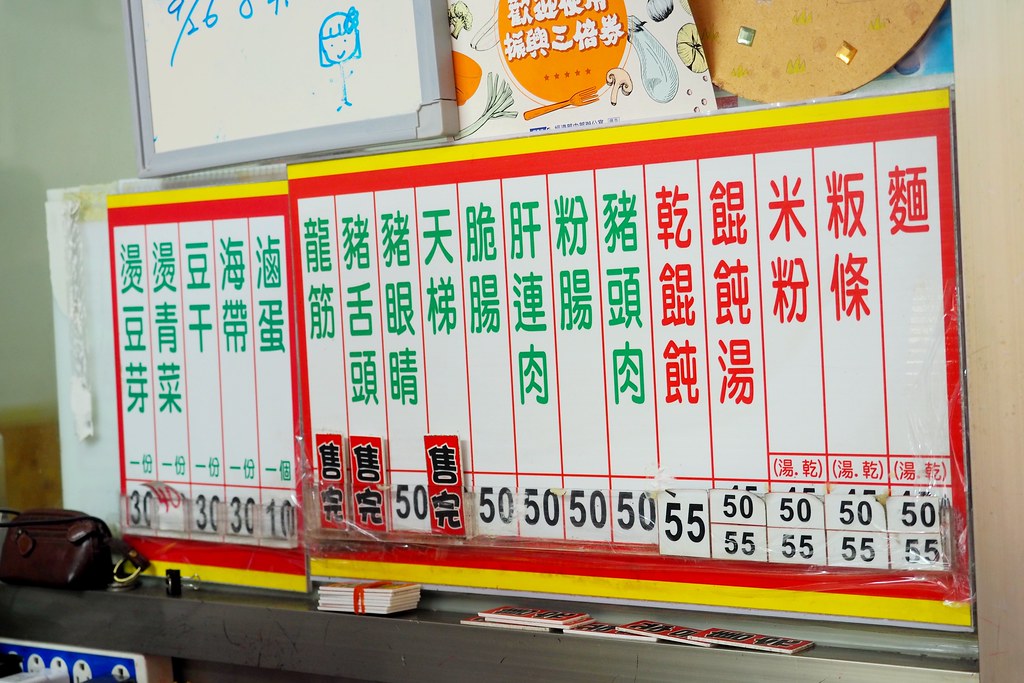 9/26
歡迎使用
振興三倍券
麵
(湯.乾)
50
55
粄條
(湯.乾)
50
55
米粉
(湯.乾)
50
55
餛飩湯
50
55
乾餛飩
55
豬頭肉
50
粉腸
50
肝連肉
50
脆腸
50
天梯
售完
豬眼睛
50
豬舌頭
售完
龍筋
售完
滷蛋
一個
10
海帶
一份
30
豆干
一份
30
燙青菜
一份
40
燙豆芽
一份
30